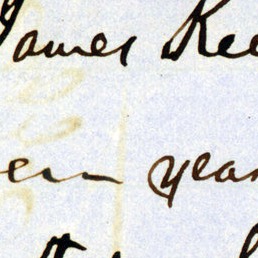 James Kee
een year